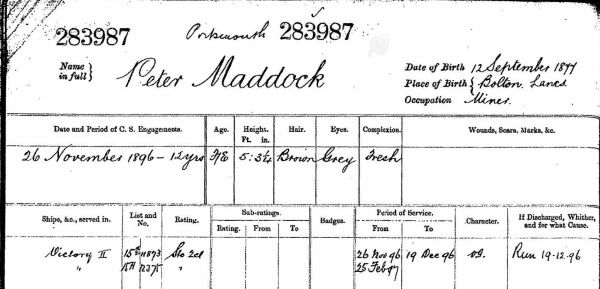 283987 Portsmouth 283987
Name in full } Peter Maddock
Date of Birth 12 September 1877
Place of Birth { Bolton. Lancs
Occupation Miner.
Date and Period of C. S. Engagements. Age. Height. Ft. in. Hair. Eyes. Complexion. Wounds, Scars, Marks, &c.
26 November 1896 - 12 yrs 5. Brown Grey Fresh
Ships, &c., served in. List and No. Rating. Sub-ratings. Rating. From To Badges. Period of Service. From To Character. If Discharged, Whither, and for what Cause.
Victory II 15A Sto 2cl 26 Nov 96 19 Dec 96 V.G. Run 19-12-96
" 15A " 25 Feb 97